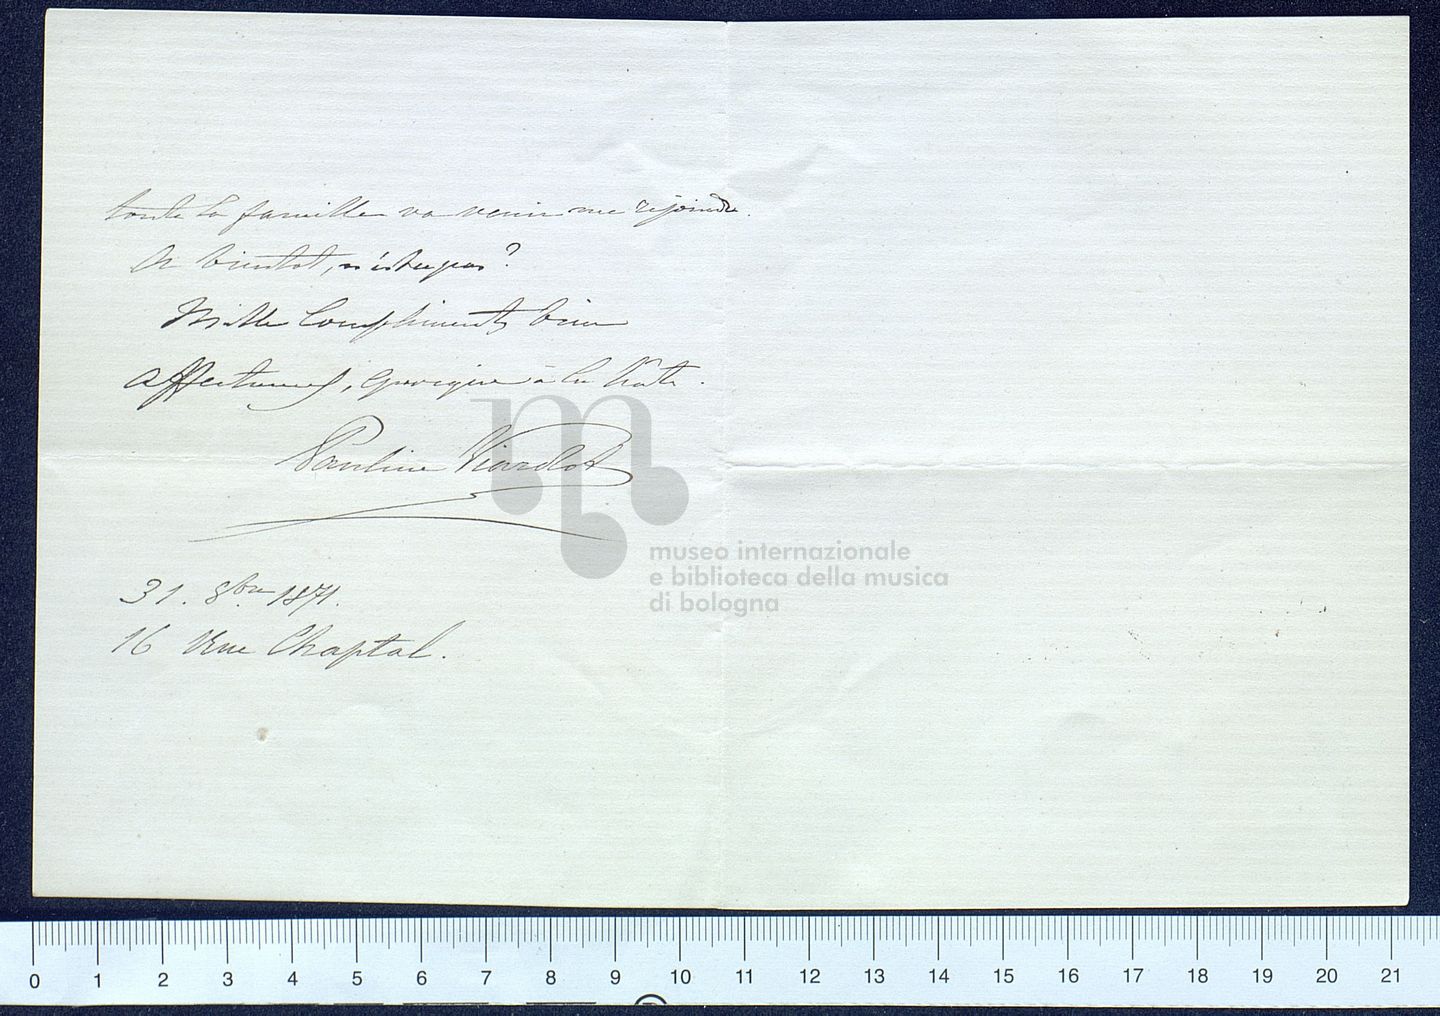 toute la famille va venir me rejoindre.
A bientot, n'estcepas?
Mille Compliments bien
affectueux, quoique à la hâte.
Pauline Viardot
31. 8bre 1871.
16 rue Chaptal.
museo internazionale
e biblioteca della musica
di bologna
0 1 2 3 4 5 6 7 8 9 10 11 12 13 14 15 16 17 18 19 20 21